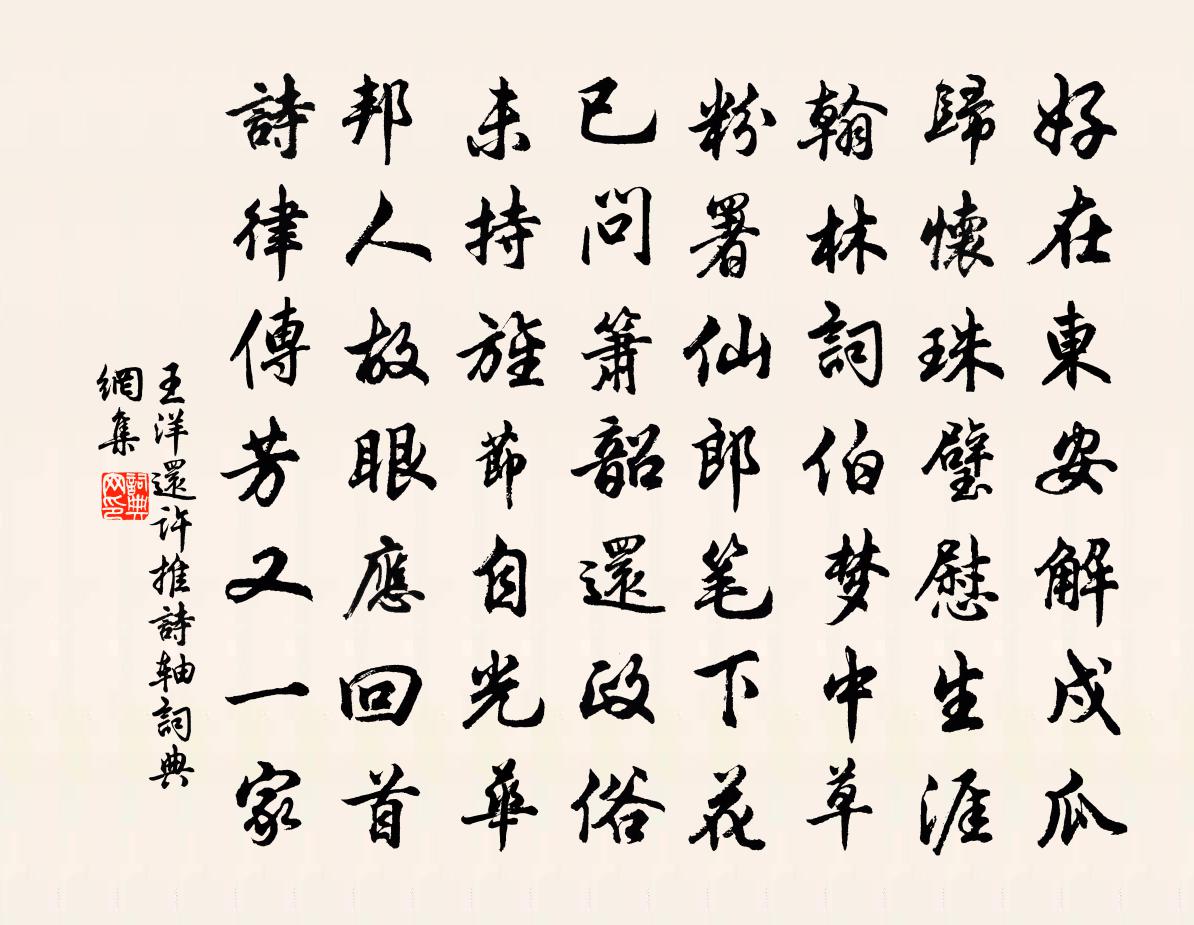 好在東安解戍瓜
歸懷珠璧慰生涯
翰林詞伯梦中草
粉署仙郎笔下花
已問簫韶還政俗
未持旌節自光華
邦人故眼應回首
詩律傳芳又一家
王洋還许推詩轴詞典
網集
詞典
网印